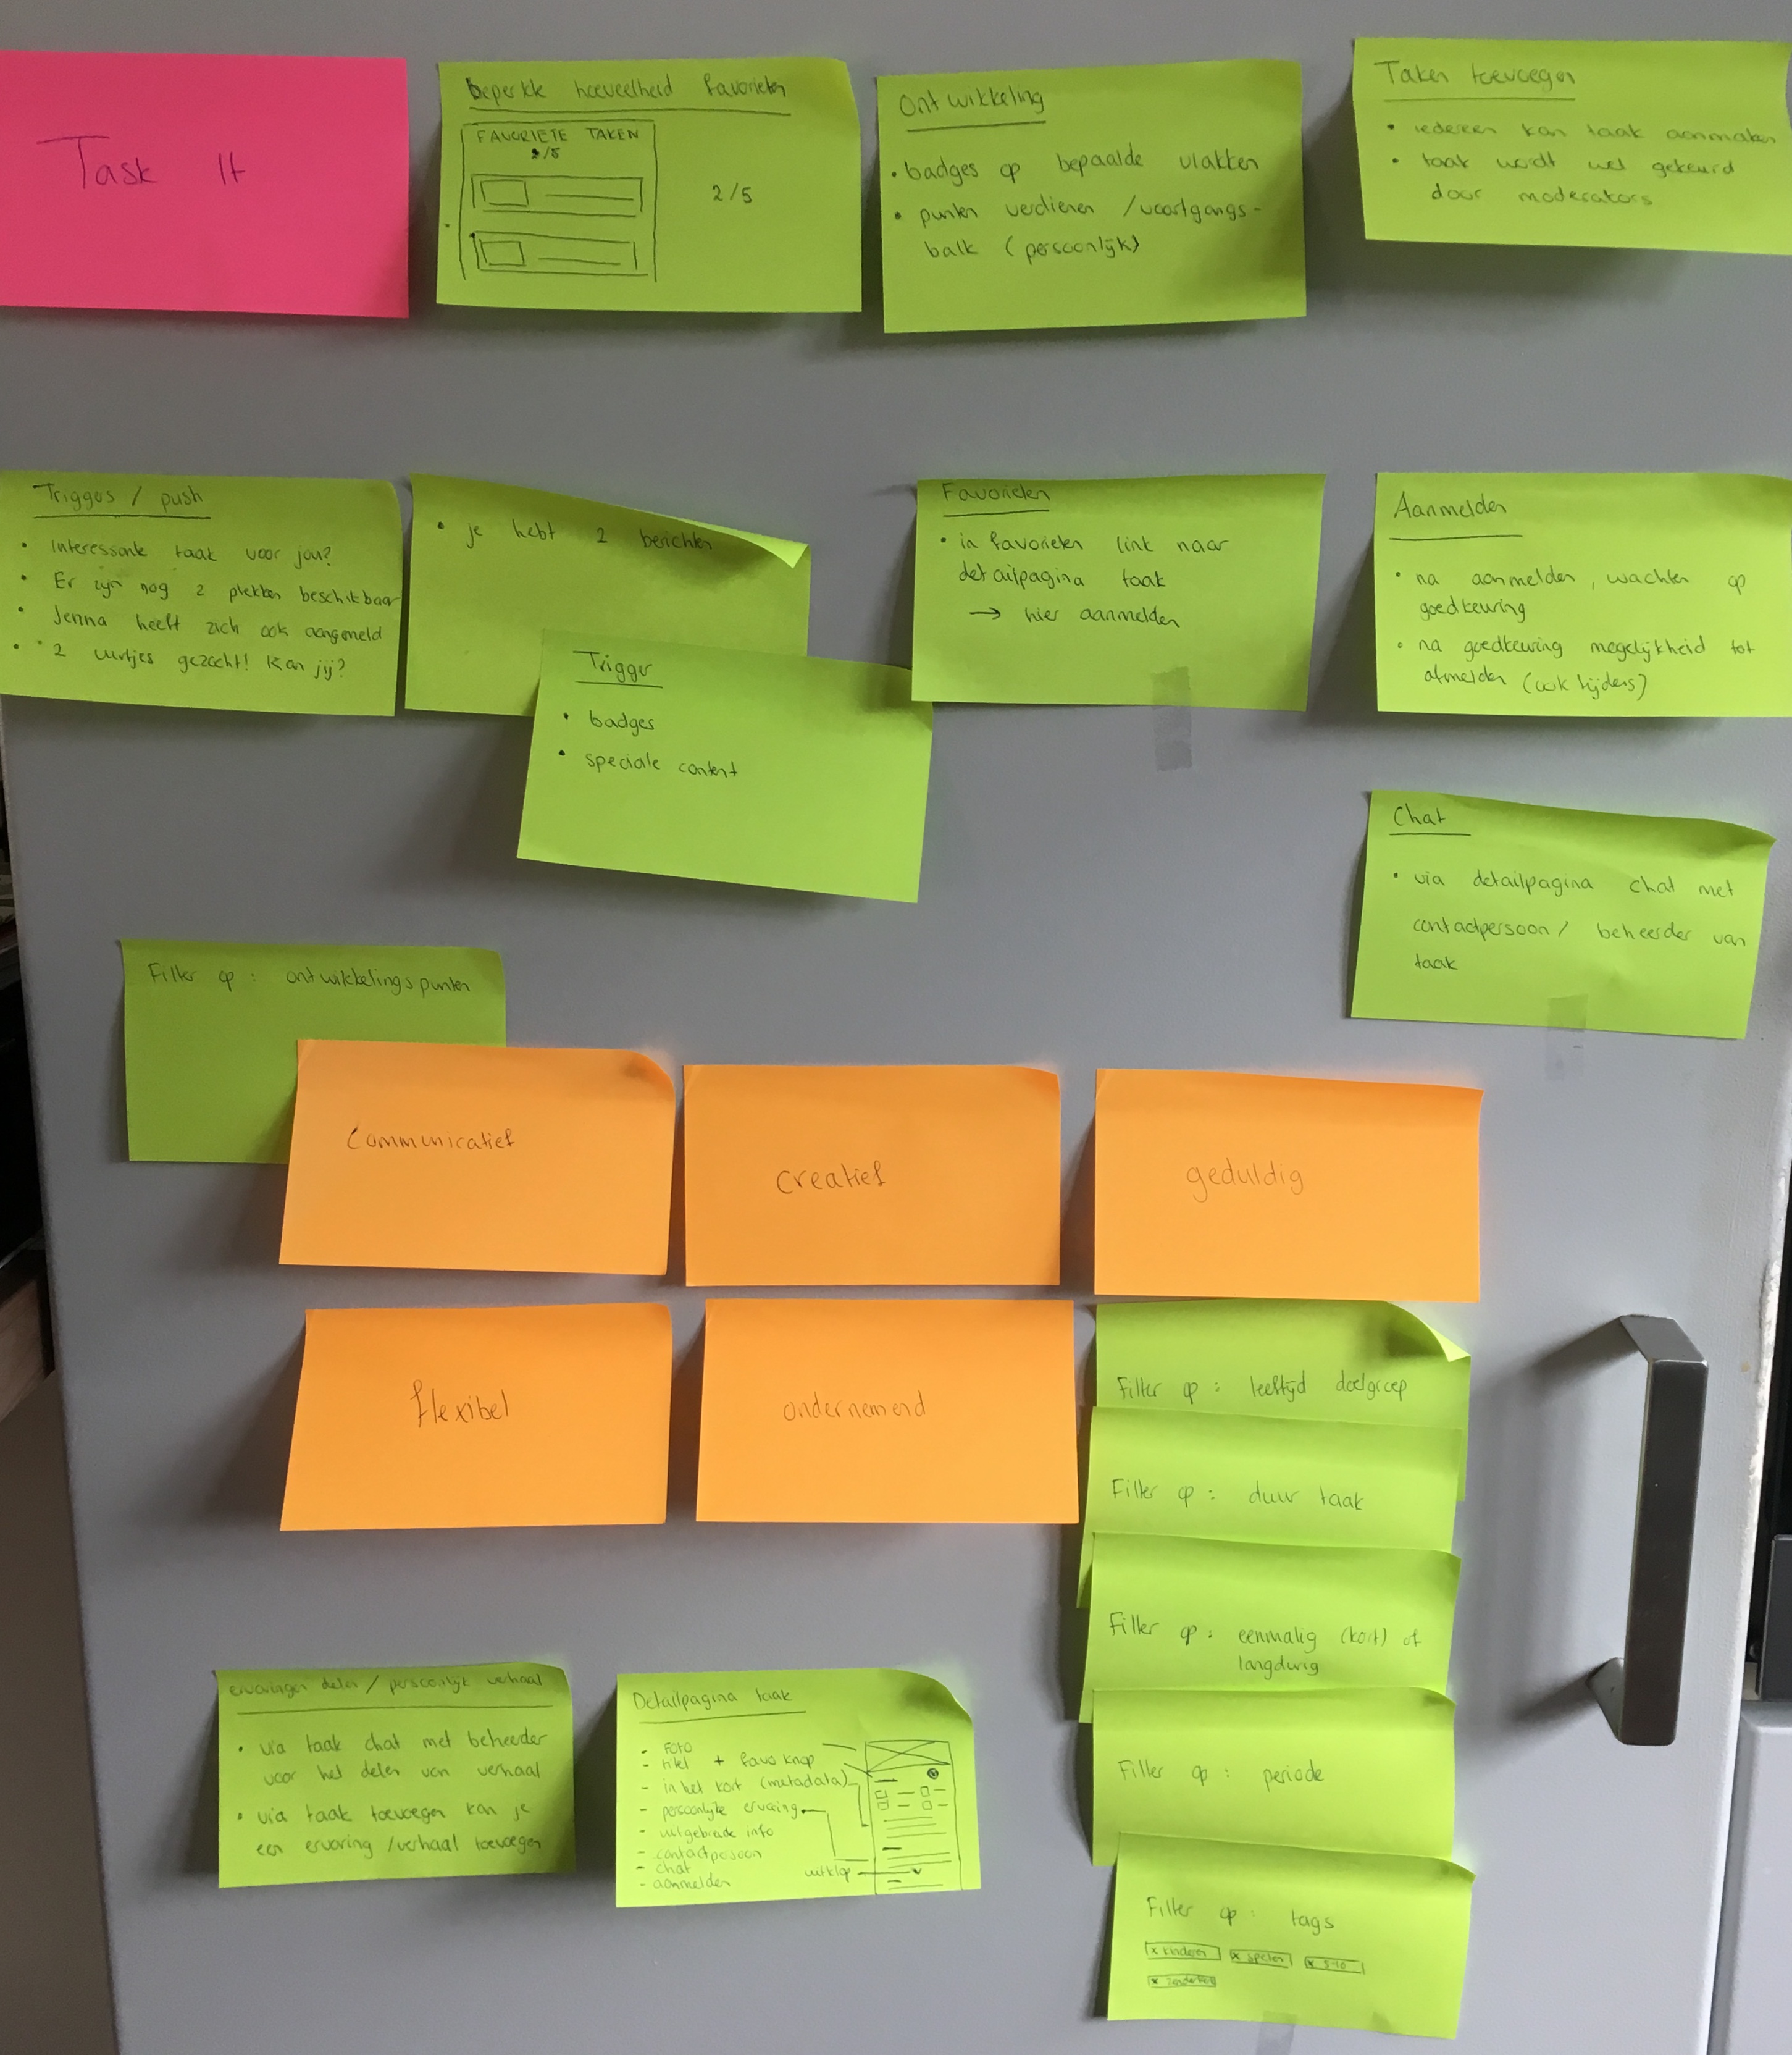 Task It
beperkte hoeveelheid favorieten
FAVORIETE TAKEN
2/5
2/5
Ontwikkeling
• badges op bepaalde vlakken
• punten verdienen / voortgangs-
balk (persoonlijk)
Taken toevoegen
• iedereen kan taak aanmaken
• taak wordt wel gekeurd
door moderators
Triggos / push
• Interessante taak voor jou?
• Er zijn nog 2 plekken beschikbaar
• Jenna heeft zich ook aangemeld
• 2 uurtjes gezocht! Kan jij?
• je hebt 2 berichten
Trigger
• badges
• speciale content
Favorieten
• in favorieten link naar
detailpagina taak
→ hier aanmelden
Aanmelden
• na aanmelden, wachten op
goedkeuring
• na goedkeuring mogelijkheid tot
afmelden (ook tijdens)
Chat
• via detailpagina chat met
contactpersoon / beheerder van
taak
Filter op : ontwikkelingspunten
Communicatief
creatief
geduldig
flexibel
ondernemend
Filter op : leeftijd doelgroep
Filter op : duur taak
Filter op : eenmalig (kort) of
langdurig
Filter op : periode
Filter op : tags
x kinderen
x spelen
x 5-10
ervaringen delen / persoonlijk verhaal
• via taak chat met beheerder
voor het delen van verhaal
• via taak toevoegen kan je
een ervaring / verhaal toevoegen
Detailpagina taak
- Foto
- titel + favo knop
- in het kort (metadata)
- persoonlijke ervaring
- uitgebreide info
- contactpersoon
- chat
- aanmelden
uitklap